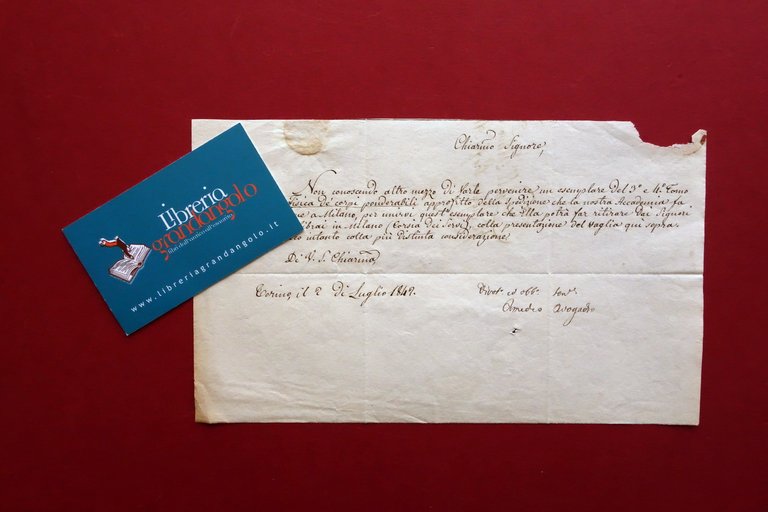 Libreria
grandangolo
www.libreriagrandangolo.it
Chiarmo Signore,
Non conoscendo altro mezzo di farle pervenire un esemplare del 3º e 4º Tomo
Fisica de' corpi ponderabili approfitto della spedizione che la nostra Accademia fa
a Milano, per unirvi quest'esemplare che Ella potrà far ritirare dai Signori
in Milano (Corsia dei Servi), colla presentazione del vaglia qui sopra.
intanto colla più distinta considerazione
Di V. S. Chiarma
Torino, il 2 di Luglio 1842.
Divot. ed obb. Serv.
Amedeo Avogadro